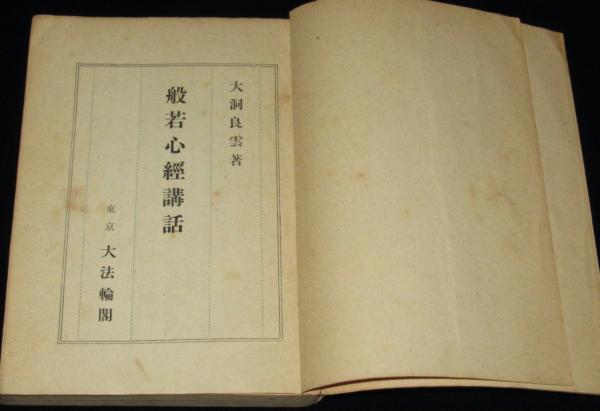 大洞良雲著
般若心經講話
東京 大法輪閣